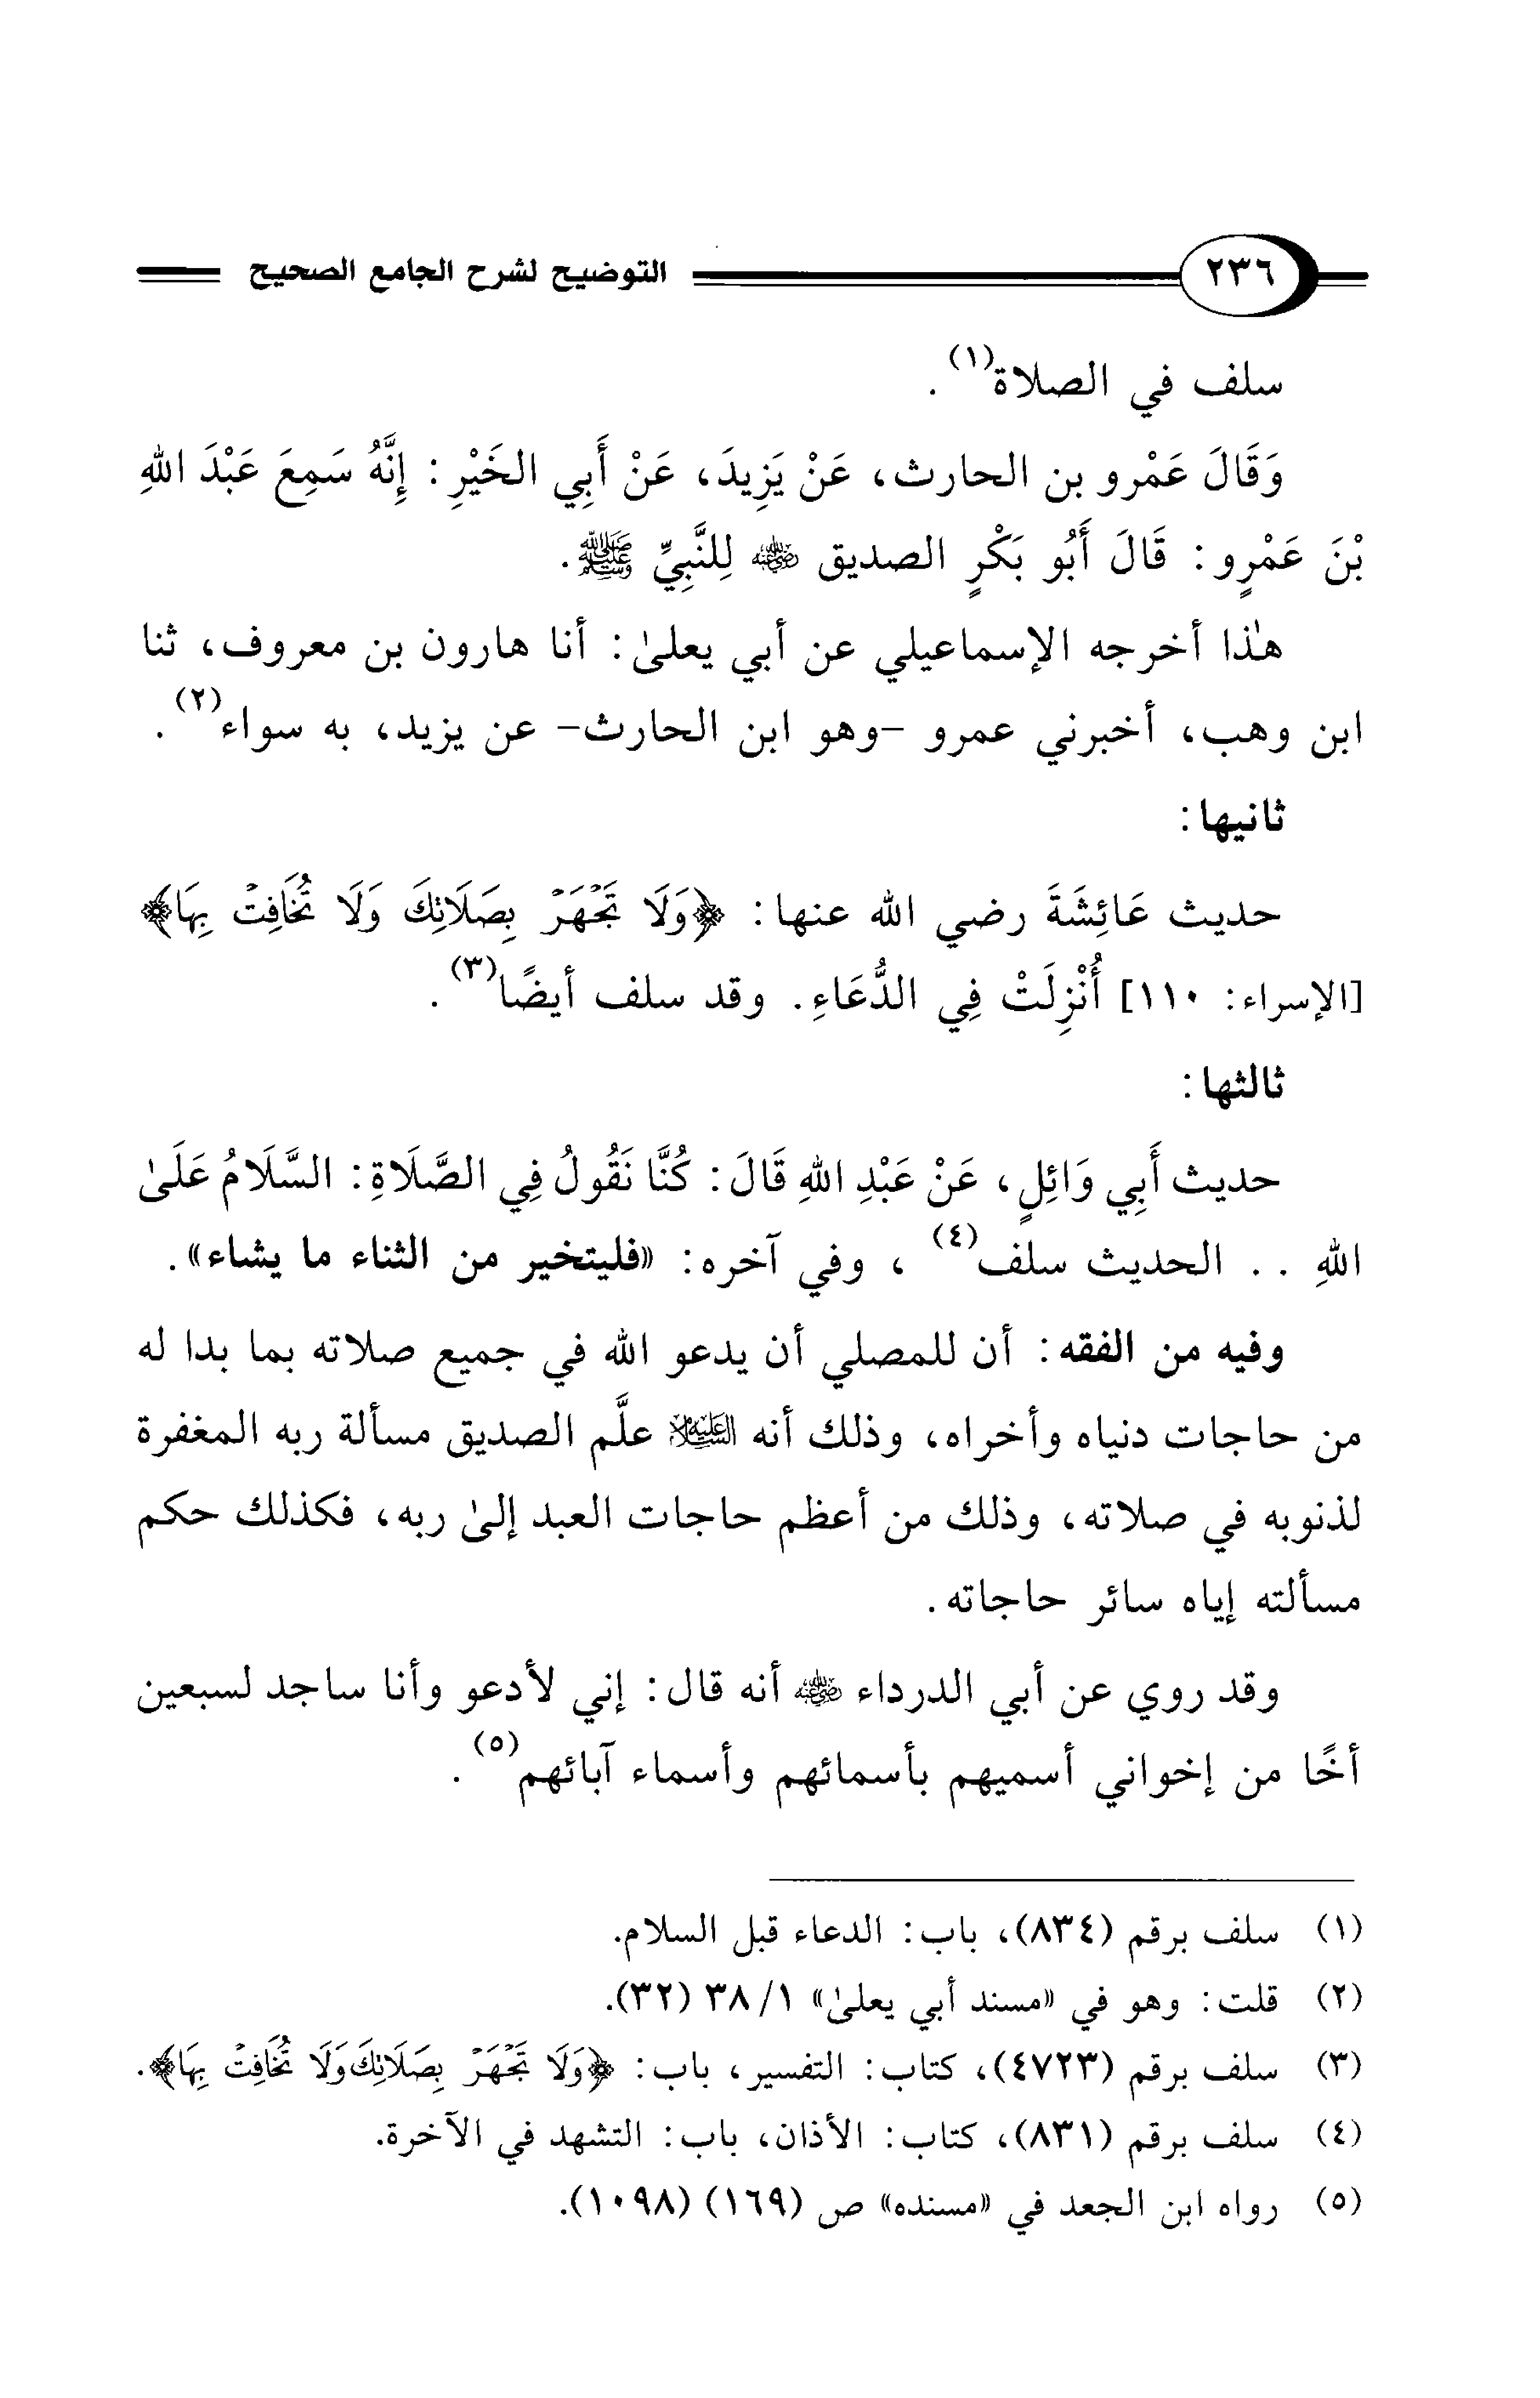 ٢٣٦ التوضيح لشرح الجامع الصحيح
سلف في الصلاة(١).
وَقَالَ عَمْرو بن الحارث، عَنْ يَزِيدَ، عَنْ أَبِي الخَيْرِ: إِنَّهُ سَمِعَ عَبْدَ اللهِ
بْنَ عَمْرٍو: قَالَ أَبُو بَكْرٍ الصديق رضي الله عنه لِلنَّبِيِّ ﷺ.
هذا أخرجه الإسماعيلي عن أبي يعلىٰ: أنا هارون بن معروف، ثنا
ابن وهب، أخبرني عمرو -وهو ابن الحارث- عن يزيد، به سواء(٢).
ثانيها:
حديث عَائِشَةَ رضي الله عنها: ﴿وَلَا تَجْهَرْ بِصَلَاتِكَ وَلَا تُخَافِتْ بِهَا﴾
[الإسراء: ١١٠] أُنْزِلَتْ فِي الدُّعَاءِ. وقد سلف أيضًا(٣).
ثالثها:
حديث أَبِي وَائِلٍ، عَنْ عَبْدِ اللهِ قَالَ: كُنَّا نَقُولُ فِي الصَّلَاةِ: السَّلَامُ عَلَىٰ
اللهِ .. الحديث سلف(٤)، وفي آخره: «فليتخير من الثناء ما يشاء».
وفيه من الفقه: أن للمصلي أن يدعو الله في جميع صلاته بما بدا له
من حاجات دنياه وأخراه، وذلك أنه عليه السلام علَّم الصديق مسألة ربه المغفرة
لذنوبه في صلاته، وذلك من أعظم حاجات العبد إلىٰ ربه، فكذلك حكم
مسألته إياه سائر حاجاته.
وقد روي عن أبي الدرداء رضي الله عنه أنه قال: إني لأدعو وأنا ساجد لسبعين
أخًا من إخواني أسميهم بأسمائهم وأسماء آبائهم(٥).
(١) سلف برقم (٨٣٤)، باب: الدعاء قبل السلام.
(٢) قلت: وهو في «مسند أبي يعلىٰ» ١/ ٣٨ (٣٢).
(٣) سلف برقم (٤٧٢٣)، كتاب: التفسير، باب: ﴿وَلَا تَجْهَرْ بِصَلَاتِكَ وَلَا تُخَافِتْ بِهَا﴾.
(٤) سلف برقم (٨٣١)، كتاب: الأذان، باب: التشهد في الآخرة.
(٥) رواه ابن الجعد في «مسنده» ص (١٦٩) (١٠٩٨).